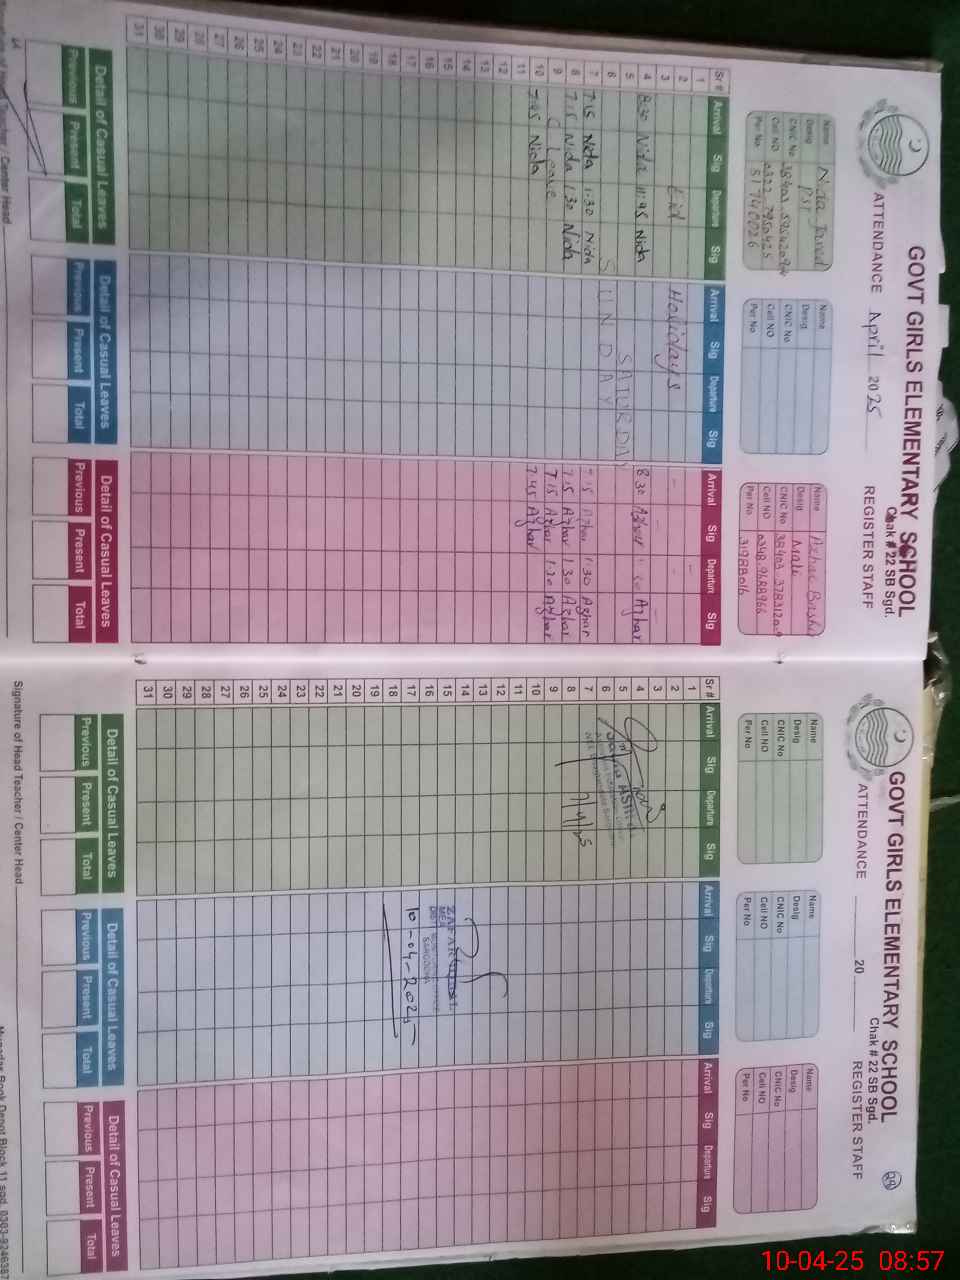 GOVT GIRLS ELEMENTARY SCHOOL
Chak # 22 SB Sgd.
ATTENDANCE April 2025 REGISTER STAFF
Name Nida Javed
Desig PST
CNIC No
Cell NO
Per No
Name
Desig
CNIC No
Cell NO
Per No
Name Azhar Bashir
Desig Mali
CNIC No
Cell NO 0348.9688966
Per No 31988016
Sr # Arrival Sig Departure Sig Arrival Sig Departure Sig Arrival Sig Departure Sig
1
2 Eid Holidays
3
4 8:30 Nida 11:45 Nida 8:30 Azhar Azhar
5 SATURDAY
6 SUNDAY
7 7:15 Nida 1:30 Nida 7:15 Azhar 1:30 Azhar
8 7:15 Nida 1:30 Nida 7:15 Azhar 1:30 Azhar
9 C Leave 7:15 Azhar 1:30 Azhar
10 7:45 Nida 7:45 Azhar
11
12
13
14
15
16
17
18
19
20
21
22
23
24
25
26
27
28
29
30
31
Detail of Casual Leaves Detail of Casual Leaves Detail of Casual Leaves
Previous Present Total Previous Present Total Previous Present Total
Head Teacher / Center Head
GOVT GIRLS ELEMENTARY SCHOOL
Chak # 22 SB Sgd.
ATTENDANCE 20 REGISTER STAFF
Name
Desig
CNIC No
Cell NO
Per No
Name
Desig
CNIC No
Cell NO
Per No
Name
Desig
CNIC No
Cell NO
Per No
Sr # Arrival Sig Departure Sig Arrival Sig Departure Sig Arrival Sig Departure Sig
1
2
3
4
5
6
7 7/4/25
8
9
10
11
12
13
14
15 ZAFAR IQBAL
16 MEA
17 SARGODHA
10-04-2025
18
19
20
21
22
23
24
25
26
27
28
29
30
31
Detail of Casual Leaves Detail of Casual Leaves Detail of Casual Leaves
Previous Present Total Previous Present Total Previous Present Total
Signature of Head Teacher / Center Head
Book Depot Block 11 sgd. 0303-9246387
10-04-25 08:57